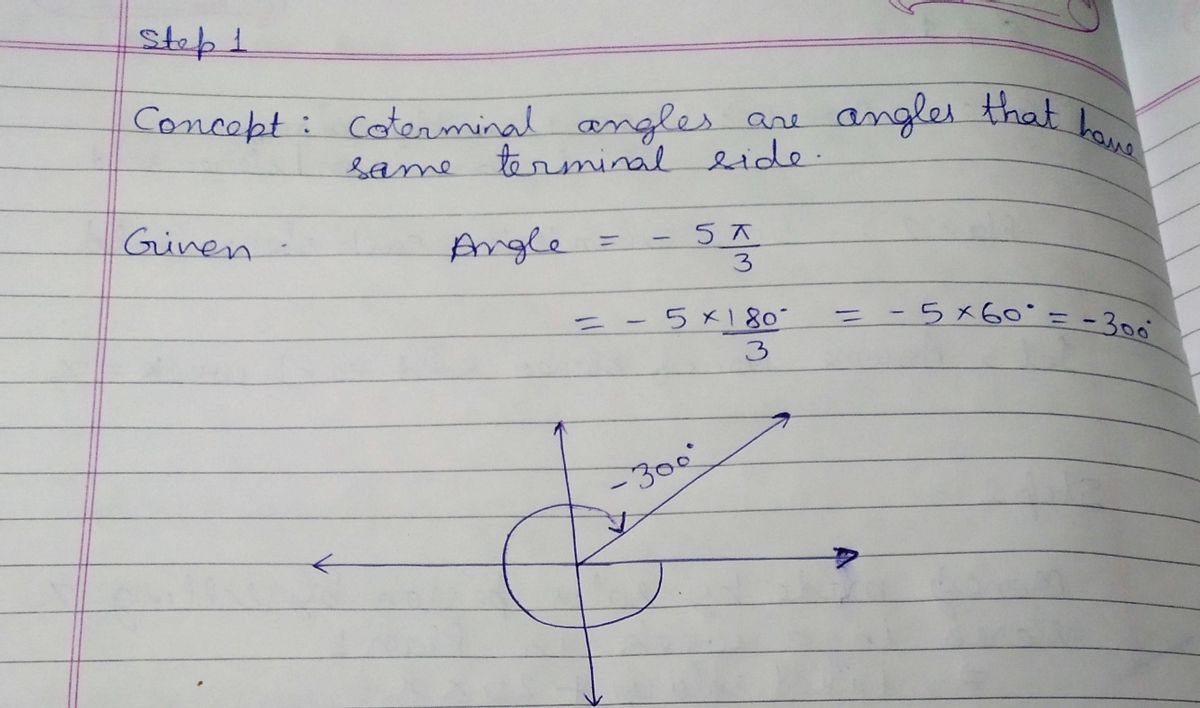 Step 1
Concept : Coterminal angles are angles that have
same terminal side.
Given . Angle = - 5π/3
= - 5 × 180°/3 = - 5 × 60° = - 300°
- 300°